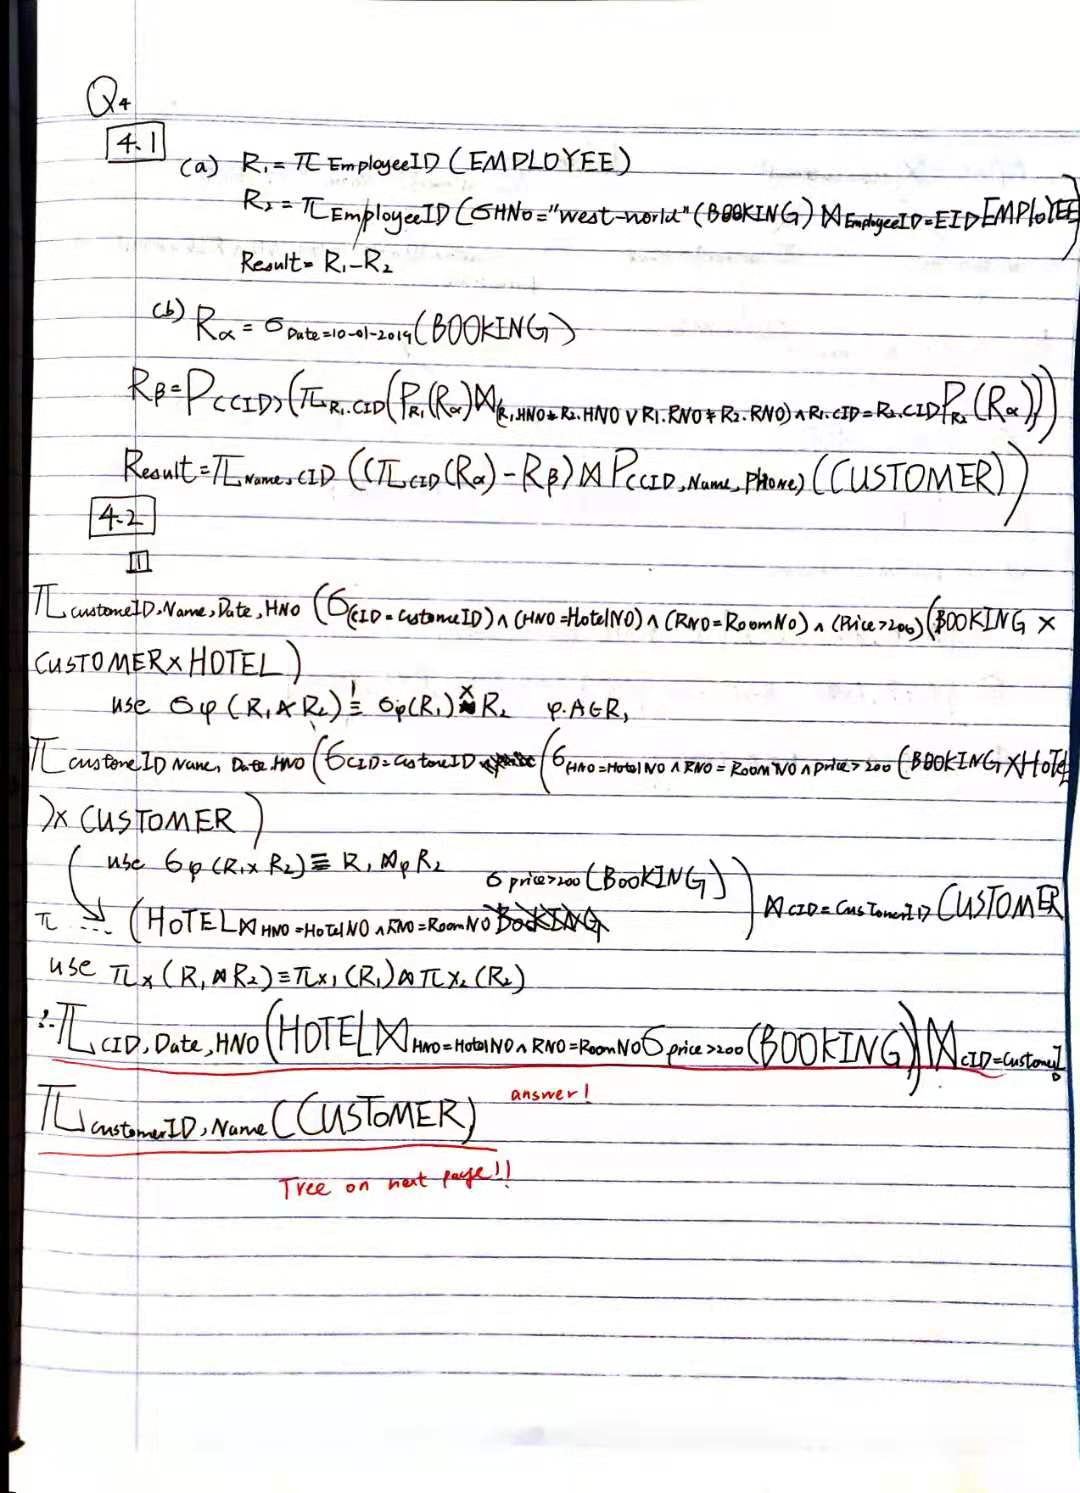 Q4
4.1
(a) R₁ = π EmployeeID (EMPLOYEE)
R₂ = π EmployeeID (σ HNo="west-world" (BOOKING) ⋈ EmployeeID=EID EMPLOYEE)
Result = R₁-R₂
(b) Rα = σ Date=10-01-2019 (BOOKING)
Rβ = ρ(CID) (π R₁.CID (ρ R₁ (Rα) ⋈ (R₁.HNO≠R₂.HNO ∨ R1.RNO≠R₂.RNO) ∧ R₁.CID=R₂.CID ρ R₂ (Rα)))
Result = π Name, CID ((π CID (Rα) - Rβ) ⋈ ρ(CID, Name, Phone) (CUSTOMER))
4.2
1
π custoneID, Name, Date, HNO (σ (CID = CustomeID) ∧ (HNO = HotelNO) ∧ (RNO = RoomNo) ∧ (Price>200) (BOOKING ×
CUSTOMER × HOTEL)
use σφ (R₁ × R₂) ≡ σφ(R₁) × R₂ φ.A∈R₁
π custoneID Name, Date, HNO (σ CID = CustoneID (σ HNO = Hotel NO ∧ RNO = RoomNO ∧ price > 200 (BOOKING × HOTEL
) × CUSTOMER)
use σφ (R₁ × R₂) ≡ R₁ ⋈φ R₂
π ... (HOTEL ⋈ HNO = HotelNO ∧ RNO = RoomNO BOOKING σ price>200 (BOOKING)) ⋈ CID = CustomerID CUSTOMER
use πx (R₁ ⋈ R₂) ≡ πx₁ (R₁) ⋈ πx₂ (R₂)
∴ π CID, Date, HNO (HOTEL ⋈ HNO = HotelNO ∧ RNO = RoomNO σ price >200 (BOOKING)) ⋈ CID = CustomeID
π customerID, Name (CUSTOMER)
answer!
Tree on next page!!